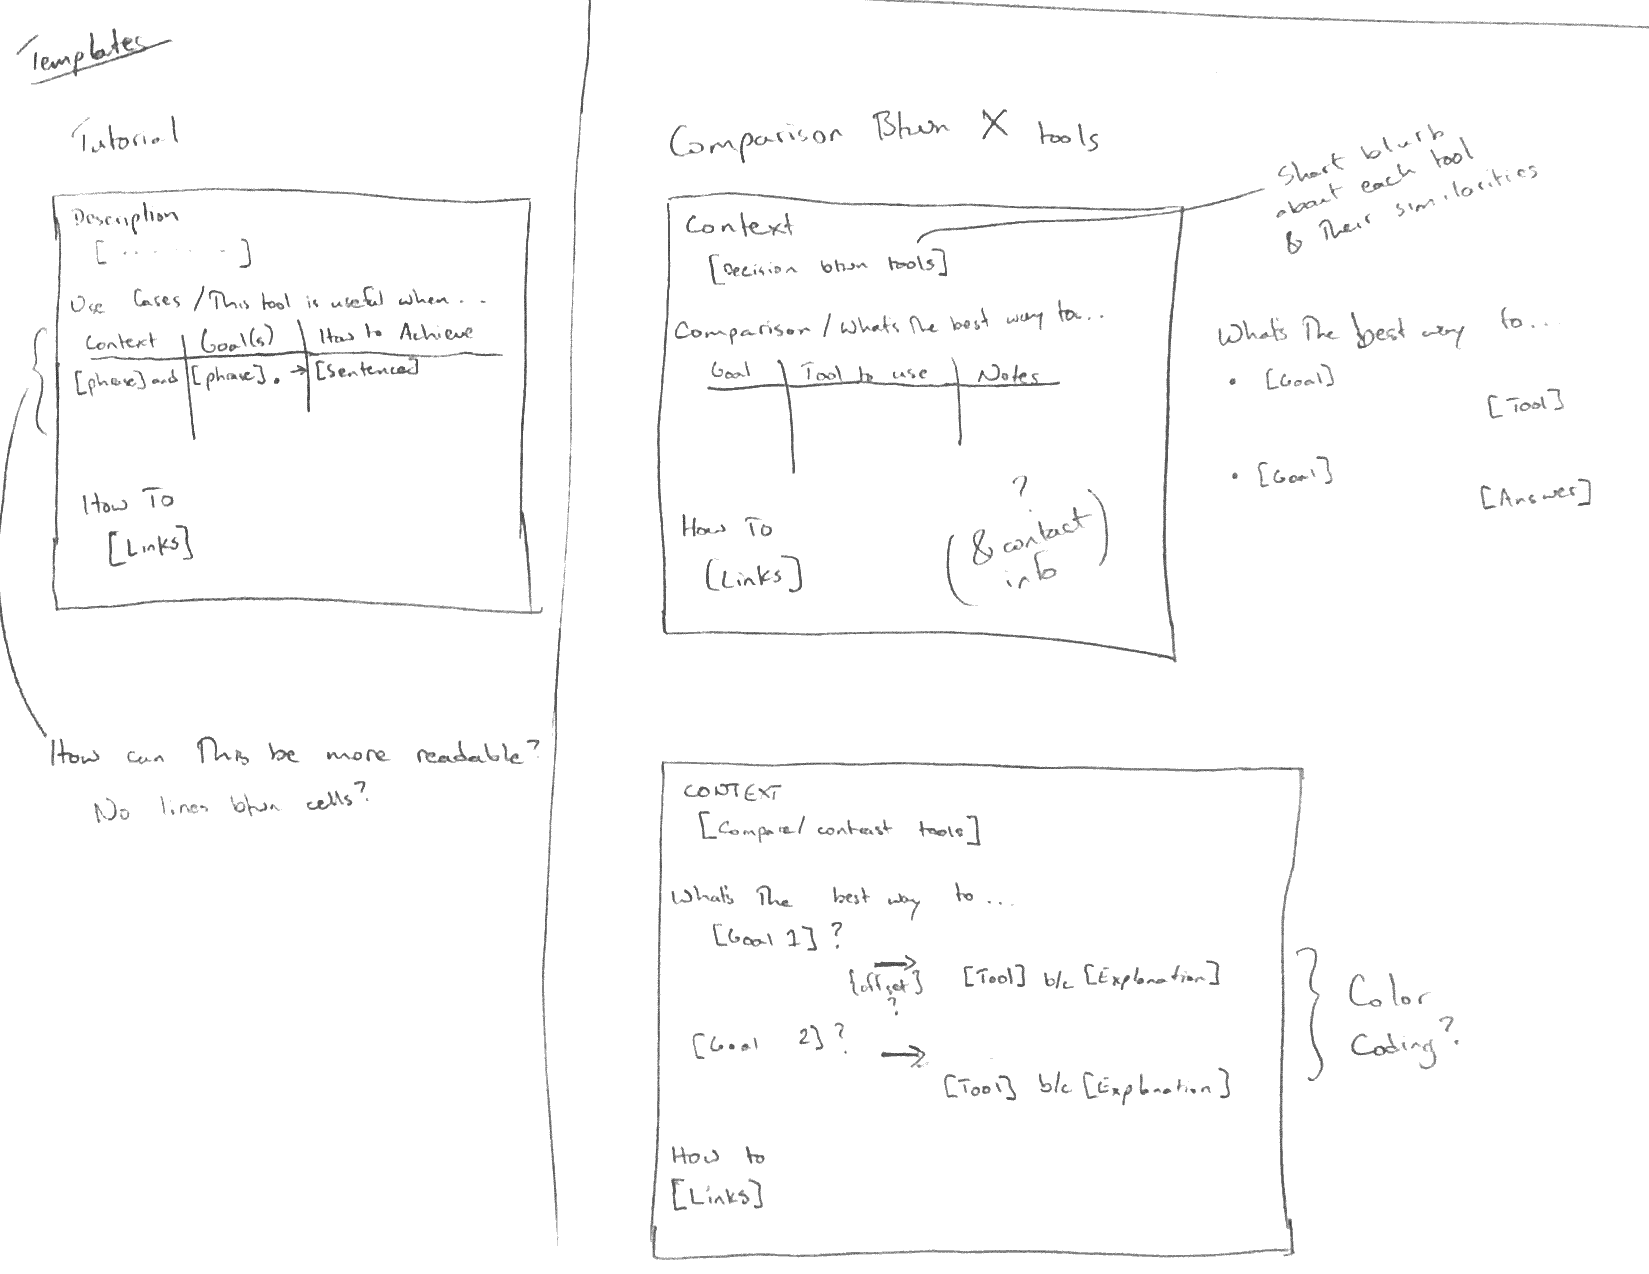 Templates
Tutorial
Description
[ ....... ]
Use Cases / This tool is useful when...
Context | Goal(s) | How to Achieve
[phrase] and | [phrase]. → | [Sentence]
How To
[Links]
How can This be more readable?
No lines btwn cells?
Comparison Btwn X tools
Short blurb
about each tool
& Their similarities
Context
[Decision btwn tools]
Comparison / What's The best way to...
Goal | Tool to use | Notes
How To
[Links]
?
(& contact
info)
What's The best way to...
• [Goal]
[Tool]
• [Goal]
[Answer]
CONTEXT
[Compare/contrast tools]
What's The best way to...
[Goal 1]?
→
{offset}
?
[Tool] b/c [Explanation]
[Goal 2]?
→
[Tool] b/c [Explanation]
How to
[Links]
Color
Coding?